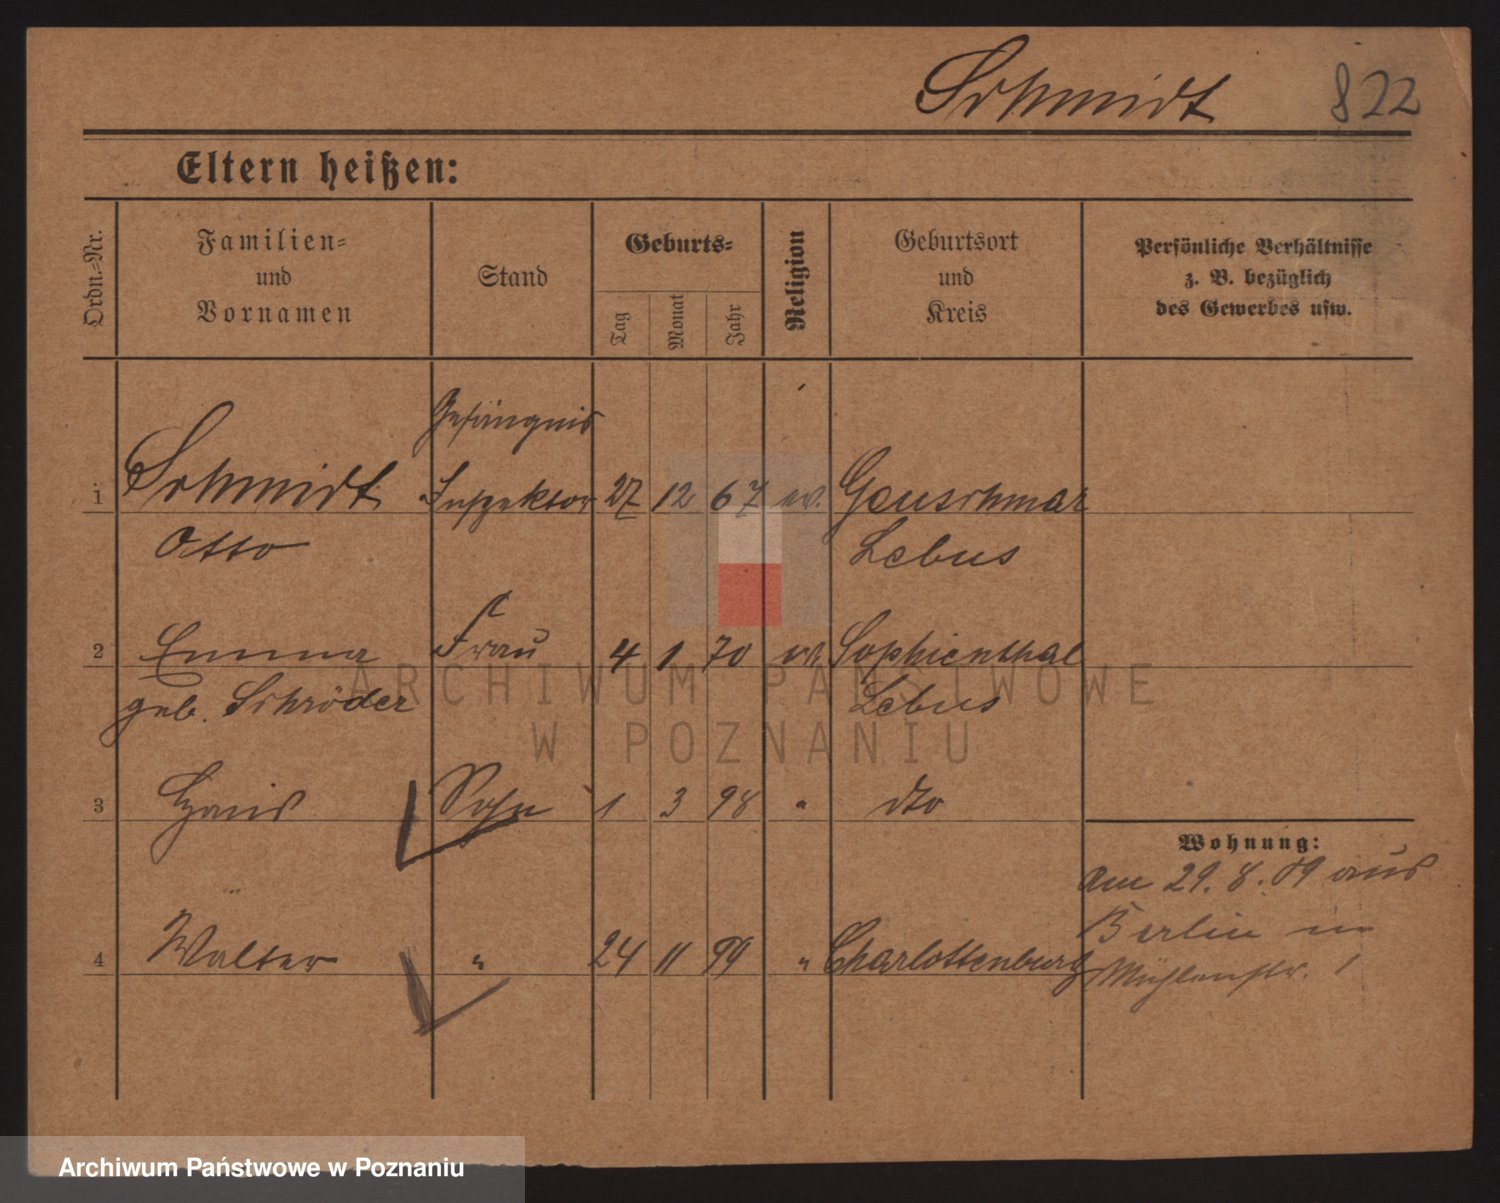 Schmidt 822
Eltern heißen:
Ordn.-Nr. Familien- und Vornamen Stand Geburts- Tag Monat Jahr Religion Geburtsort und Kreis Persönliche Verhältnisse z. B. bezüglich des Gewerbes usw.
Gefängnis
1 Schmidt Inspektor 27 12 67 ev. Geuschmar
Otto Lebus
2 Emma Frau 4 1 70 ev. Sophienthal
geb. Schröder Lebus
3 Hans Sohn 1 3 98 " dto
Wohnung:
am 29. 8. 09 aus
Berlin in
4 Walter " 24 11 99 " Charlottenburg Mühlenstr. 1
ARCHIWUM PAŃSTWOWE
W POZNANIU
Archiwum Państwowe w Poznaniu